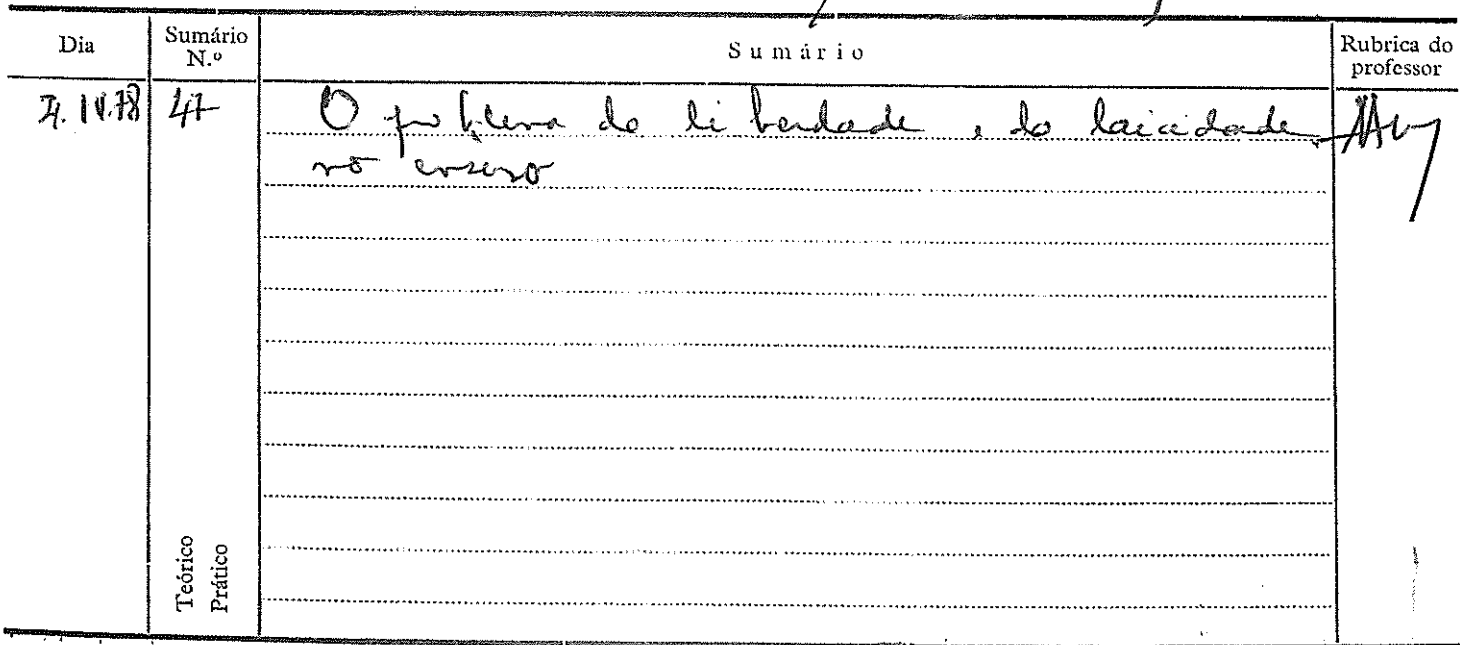 Dia
Sumário N.º
Sumário
Rubrica do professor
47
O problema da liberdade e da laicidade
no ensino
Teórico
Prático